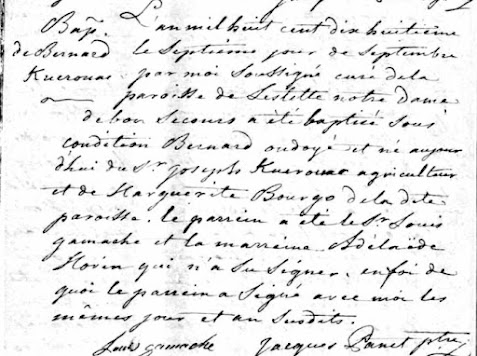 Bap.
de Bernard
Kuerouac
L'an mil huit cent dix huitieme
le Septiéme jour de Septembre
par moi Soussigné curé de la
paroisse de Leslette notre Dame
de bon Secours a été baptisé sous
condition Bernard ondoyé et né aujour
d'hui du Sr. joseph Kuerouac agriculteur
et de Marguerite Bourgo de la dite
paroisse. le parrein a été le Sr Louis
gamache et la marreine Adélaïde
Morin qui n'a Su Signer. en foi de
quoi le parrein a Signé avec moi les
mêmes jour et an Susdits.
Louis gamache jacques Panet ptre